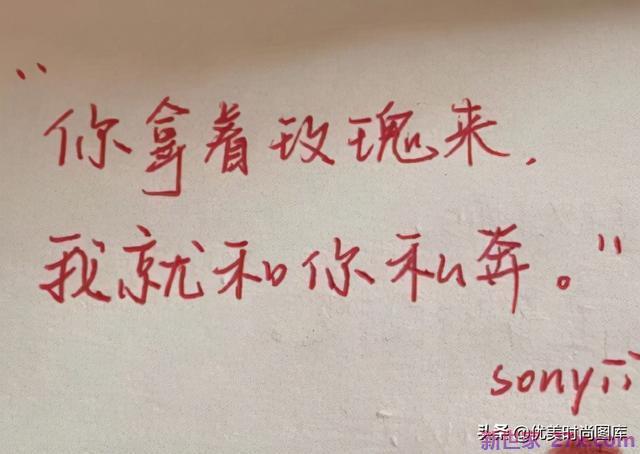 “你拿着玫瑰来,
我就和你私奔。”
sony
头条 @优美时尚图库
新世家 21x.com